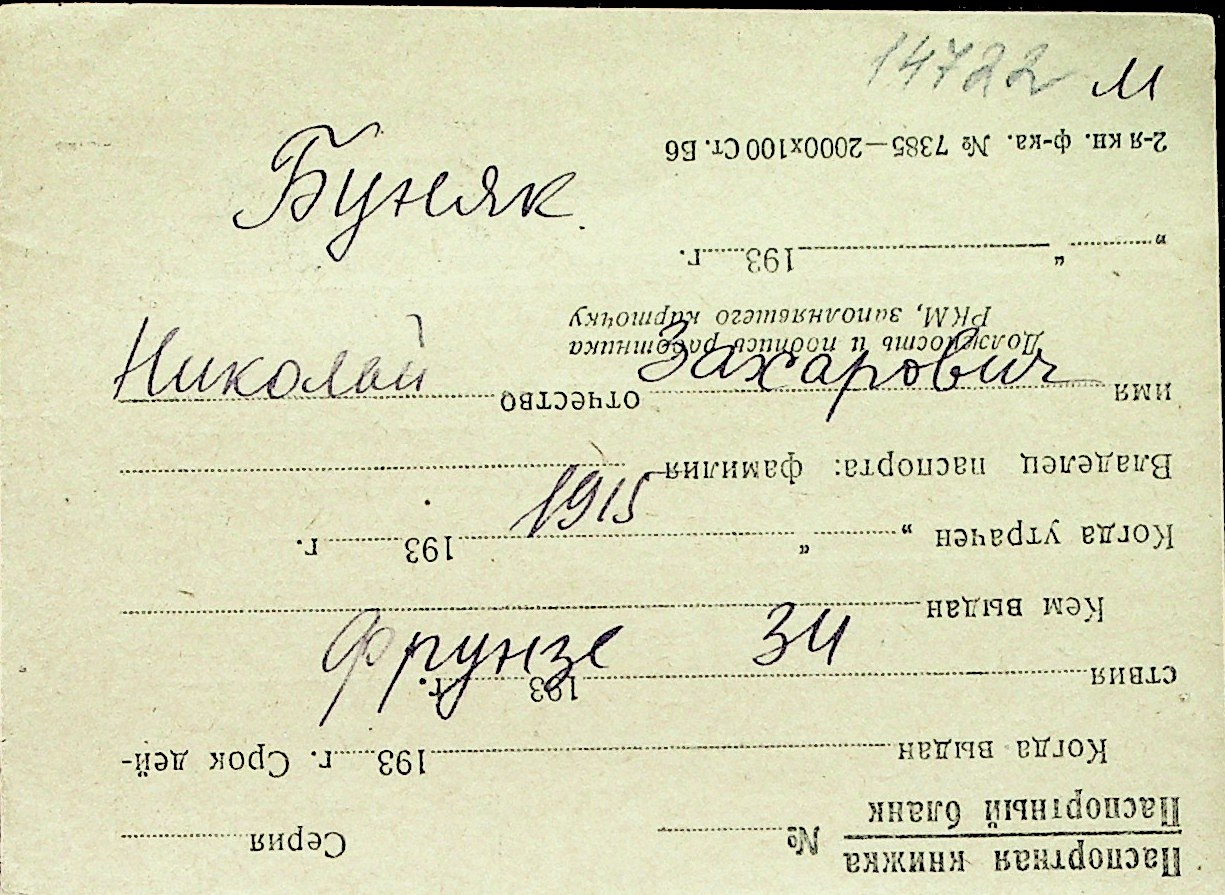 14722 М
Буняк
Николай Захарович
1915
Фрунзе 34
Паспортная книжка
Паспортный бланк № Серия
Когда выдан 193 г. Срок дей-
ствия 193 г.
Кем выдан
Когда утрачен „ “ 193 г.
Владелец паспорта: фамилия
имя отчество
Должность и подпись работника
РКМ, заполнявшего карточку
„ “ 193 г.
2-я кн. ф-ка. № 7385—2000х100 Ст. Б6